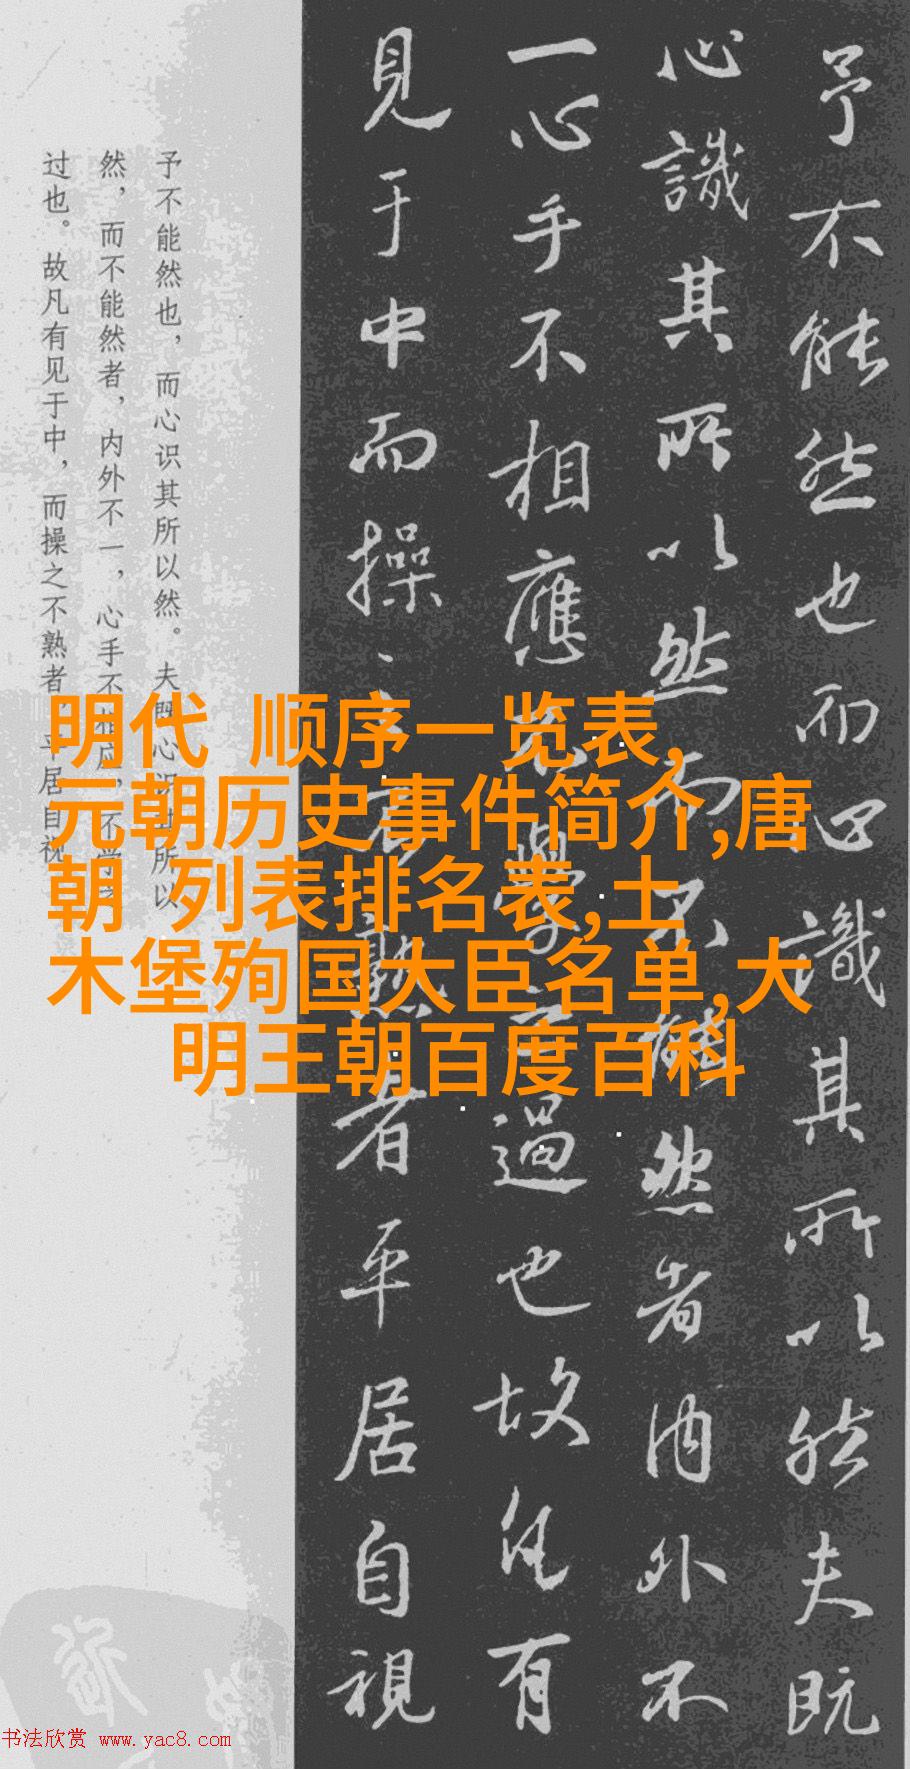 予不能然也而心識其所以然夫既
心識其所以然而不能然者內外不
一心手不相應不學之過也故凡有
見于中而操之不熟者平居自視
予不能然也，而心识其所以然。夫既心识其所以
然，而不能然者，内外不一，心手不相应，不学之
过也。故凡有见于中，而操之不熟者，平居自视
明代 顺序一览表,
元朝历史事件简介,唐
朝 列表排名表,土
木堡殉国大臣名单,大
明王朝百度百科
书法欣赏 www.yac8.com